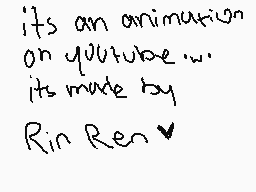 its an animation
on youtube .w.
its made by
Rin Ren ♥